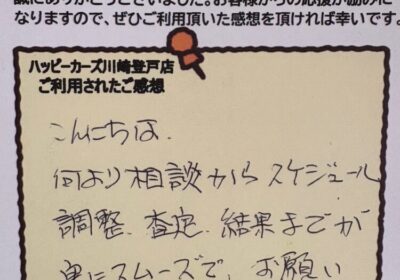 誠にありがとうございました。お客様からの応援が励みに
なりますので、ぜひご利用頂いた感想を頂ければ幸いです。
ハッピーカーズ川崎登戸店
ご利用されたご感想
こんにちは.
何より相談からスケジュール
調整、査定、結果までが
実にスムーズで、お願い